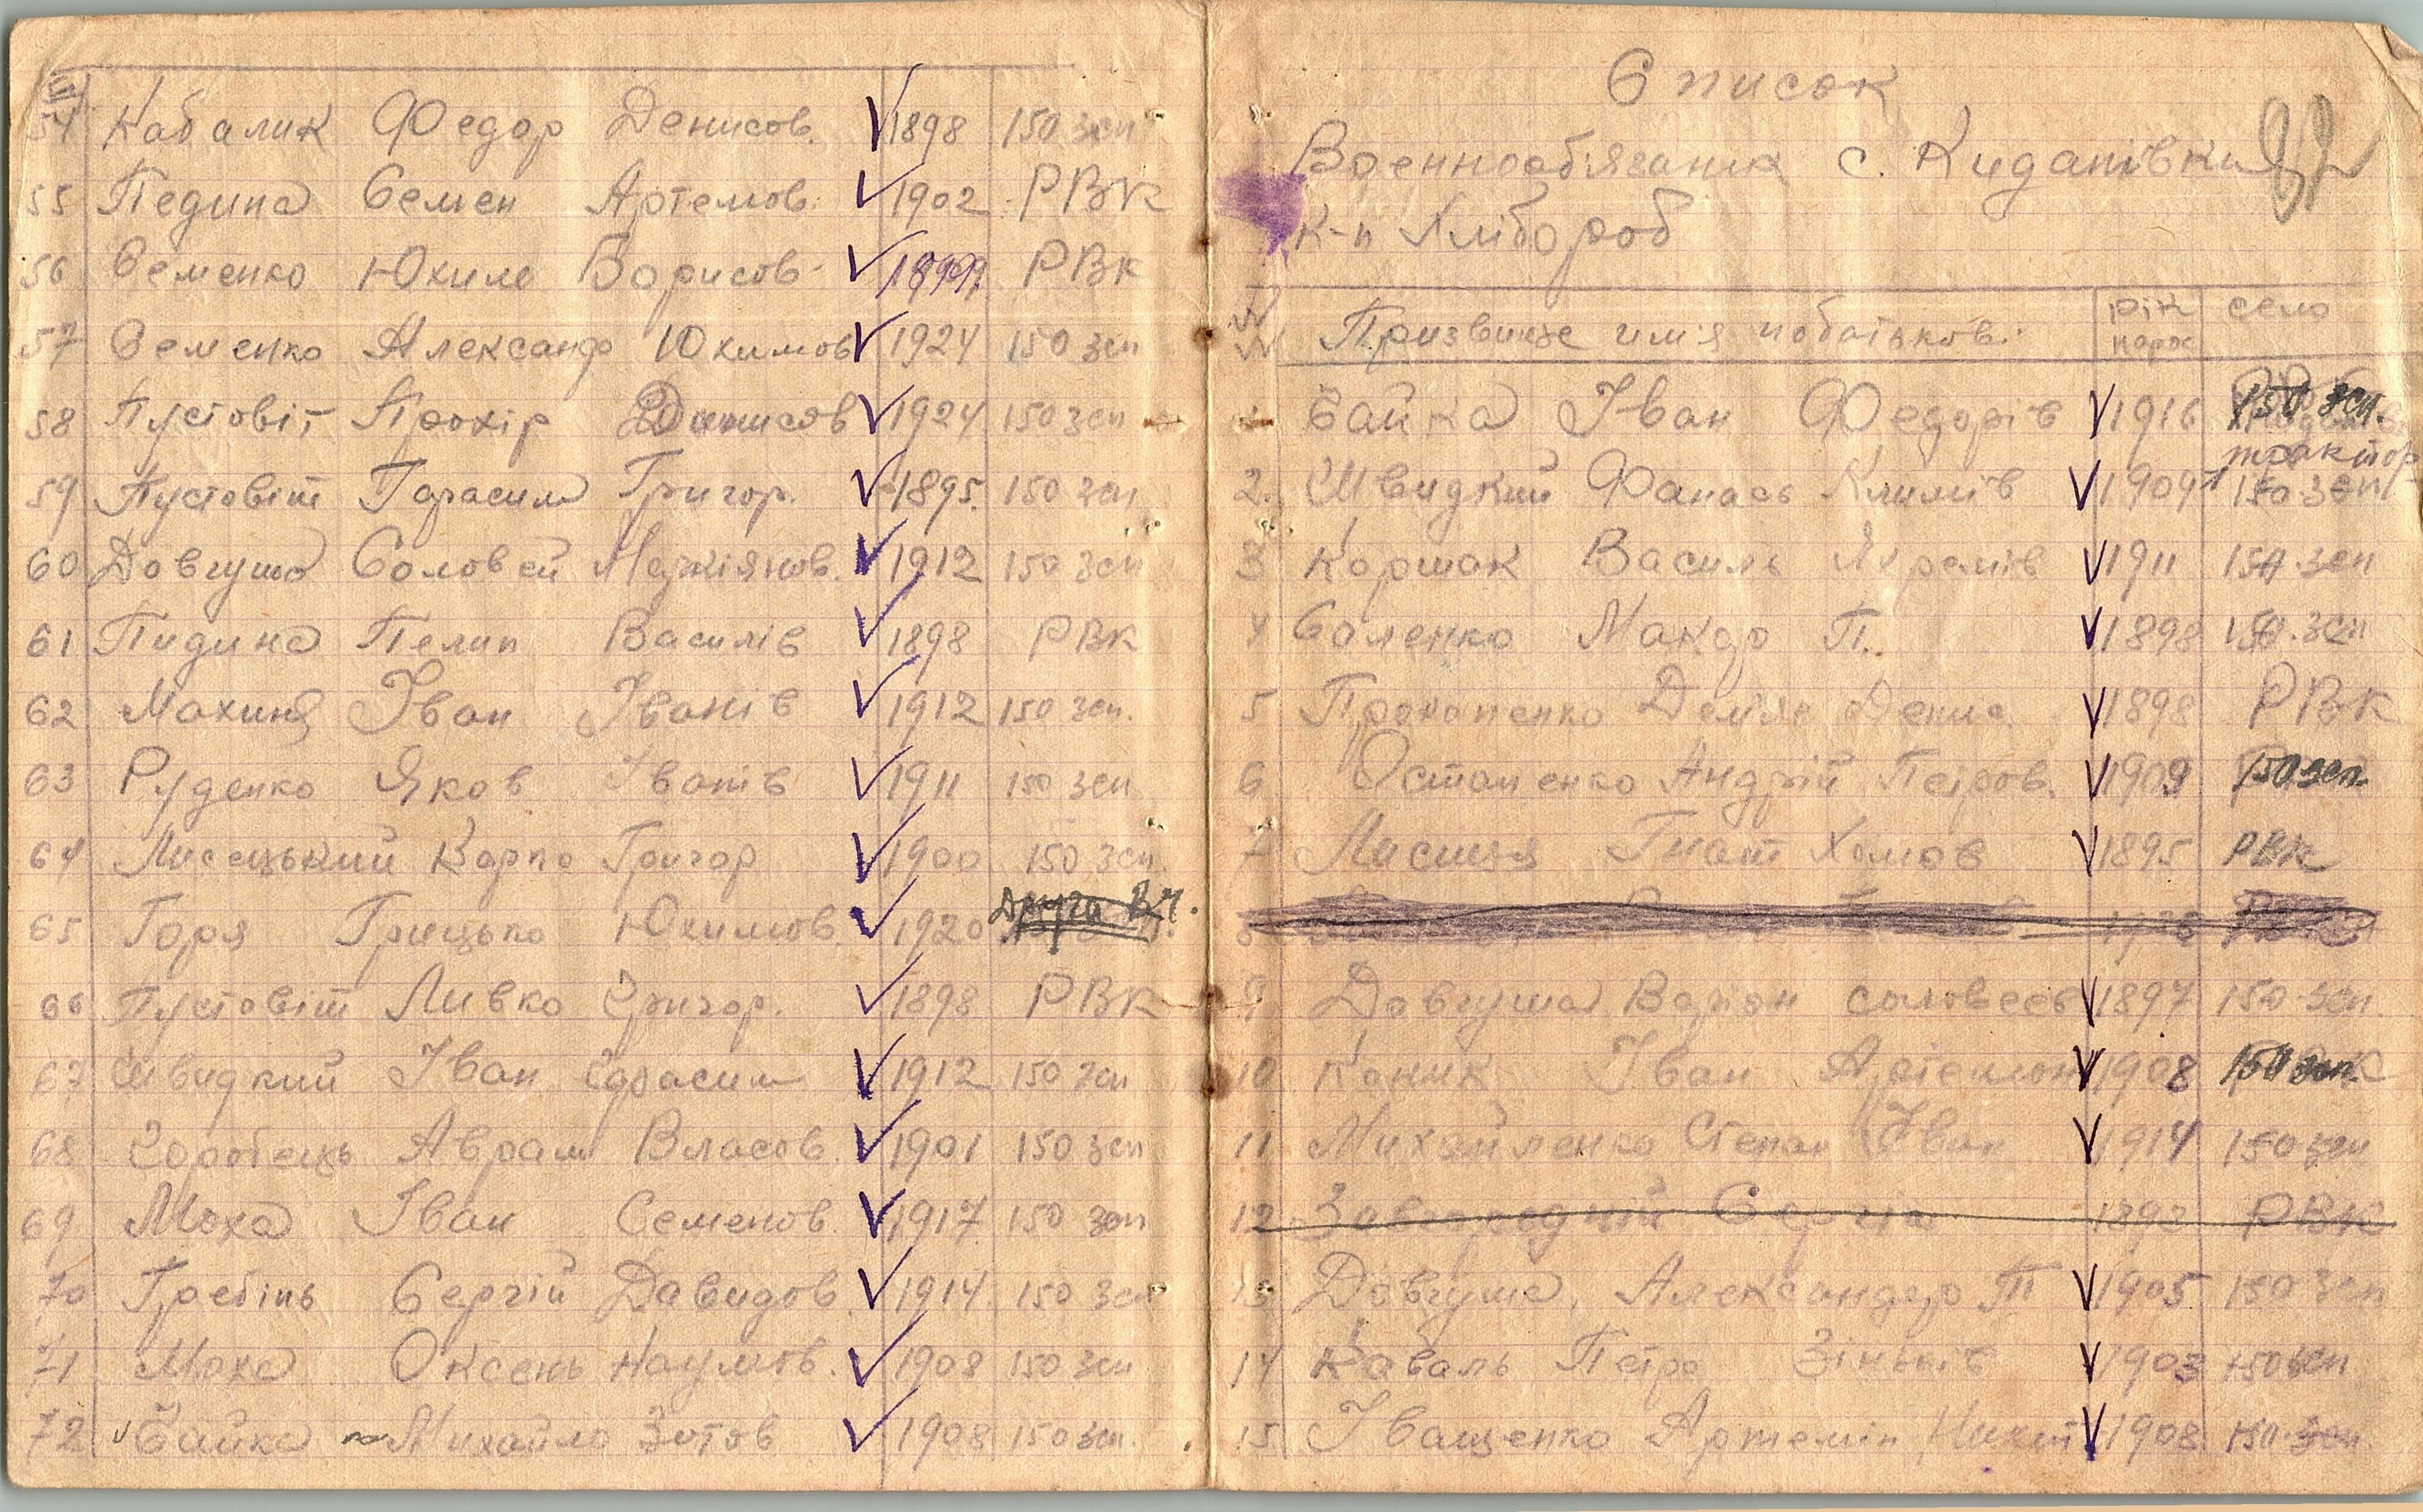 54 Кабалик Федор Денисов. 1898 150 зсп
55 Педина Семен Артемов. 1902 РВК
56 Семенко Юхим Борисов 1899 РВК
57 Семенко Александр Юхимов 1924 150 зсп
58 Пустовіт Прохір Денисов 1924 150 зсп
59 Пустовіт Гарасим Григор. 1895 150 зсп
60 Довгуша Соловей 1912 150 зсп
61 Пидина Пелип Василів 1898 РВК
62 Махиня Іван Іванів 1912 150 зсп.
63 Руденко Яков Іванів 1911 150 зсп
64 Лисецький Карпо Григор 1900 150 зсп.
65 Горя Грицько Юхимов. 1920 Друга В.Ч.
66 Пустовіт Ливко Григор. 1898 РВК
67 Швидкий Іван Гарасим 1912 150 зсп
68 Горобець Аврам Власов. 1901 150 зсп
69 Моха Іван Семенов. 1917 150 зсп
70 Гребінь Сергій Давидов 1914 150 зсп
71 Моха Оксень Наумов. 1908 150 зсп
72 Байка Михайло Зотов 1908 150 зсп.
Список
Военнообязаних с. Киданівки
к-п Хлібороб
Призвище имя побатькові рік народ село
1 Байка Іван Федорів 1916 150 зсп.
трактор
2. Швидкий Фанась Климів 1909 150 зсп
3 Коршак Василь Яхремів 1911 150 зсп
4 Саленко Макар П. 1898 150 зсп
5 Прокопенко Демян Денис. 1898 РВК
6 Остапенко Андрій Петров. 1909 150 зсп.
7 Лисиця Гнат Хомов 1895 РВК
8
9 Довгуша Варіон Соловеев 1897 150 зсп.
10 Коник Іван Артемон 1908 150 зсп.
11 Михайленко Степан Іван 1914 150 зсп
12 Завгородний Сергій РВК
13 Довгуша Александер П 1905 150 зсп
14 Коваль Петро Зіньків 1903 150 зсп
15 Іващенко Артемін Никит 1908 150 зсп.